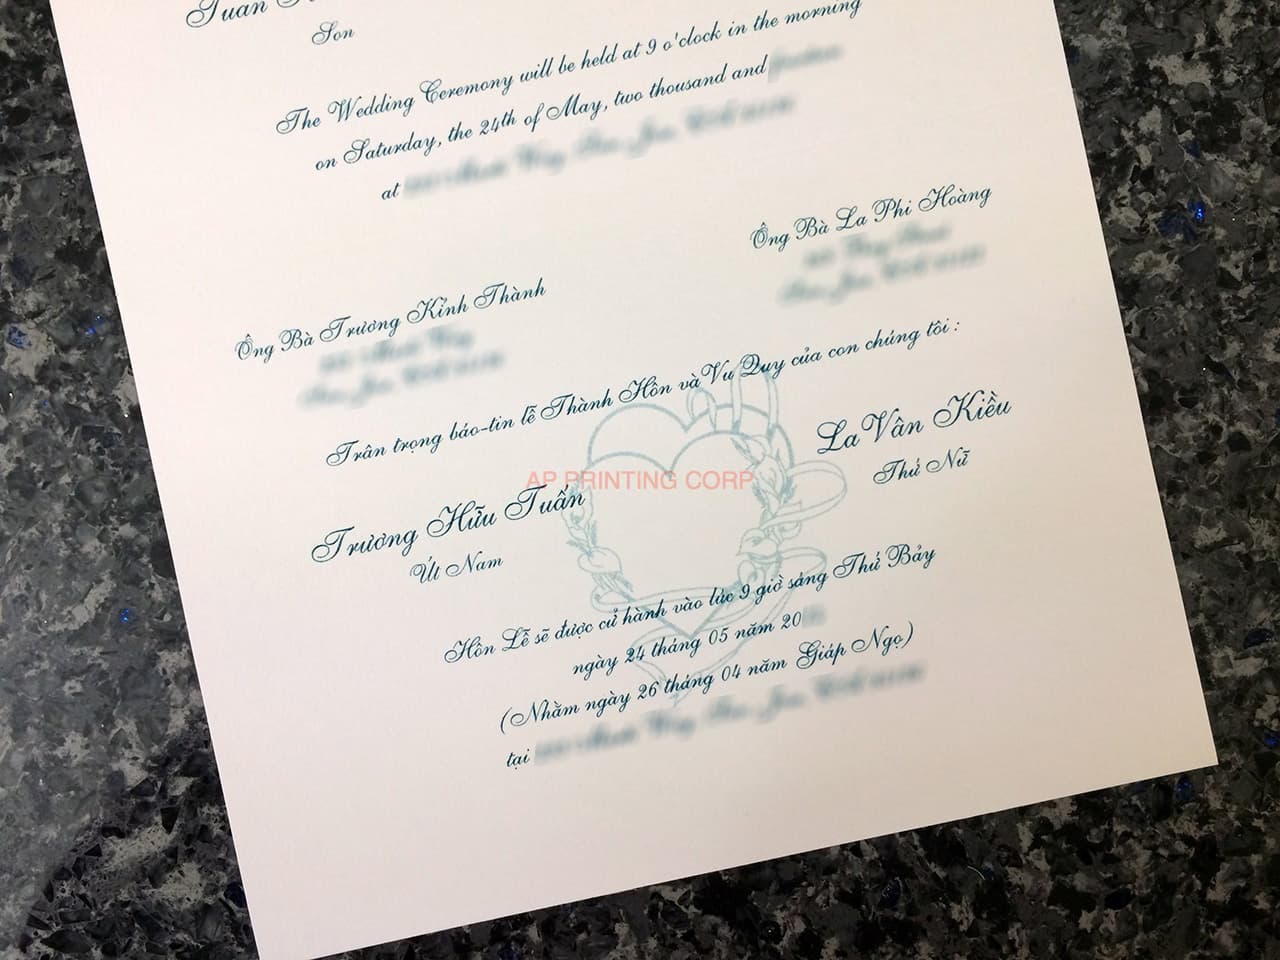 Tuan
Son
The Wedding Ceremony will be held at 9 o'clock in the morning
on Saturday, the 24th of May, two thousand and
at
Ông Bà La Phi Hoàng
Ông Bà Trương Kỉnh Thành
Trân trọng báo-tin lễ Thành Hôn và Vu Quy của con chúng tôi :
La Vân Kiều
Thứ Nữ
AP PRINTING CORP
Trương Hữu Tuấn
Út Nam
Hôn Lễ sẽ được cử hành vào lúc 9 giờ sáng Thứ Bảy
ngày 24 tháng 05 năm 20
(Nhằm ngày 26 tháng 04 năm Giáp Ngọ)
tại